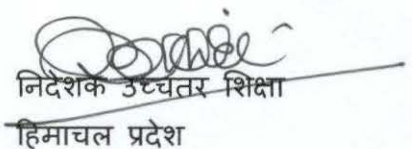 निदेशक उच्चतर शिक्षा
हिमाचल प्रदेश